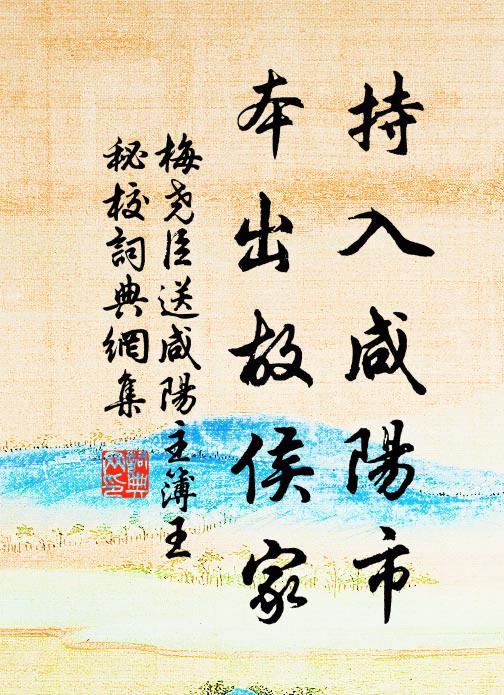 持入咸陽市
本出故侯家
梅堯臣送咸陽主簿王
秘校詞典網集